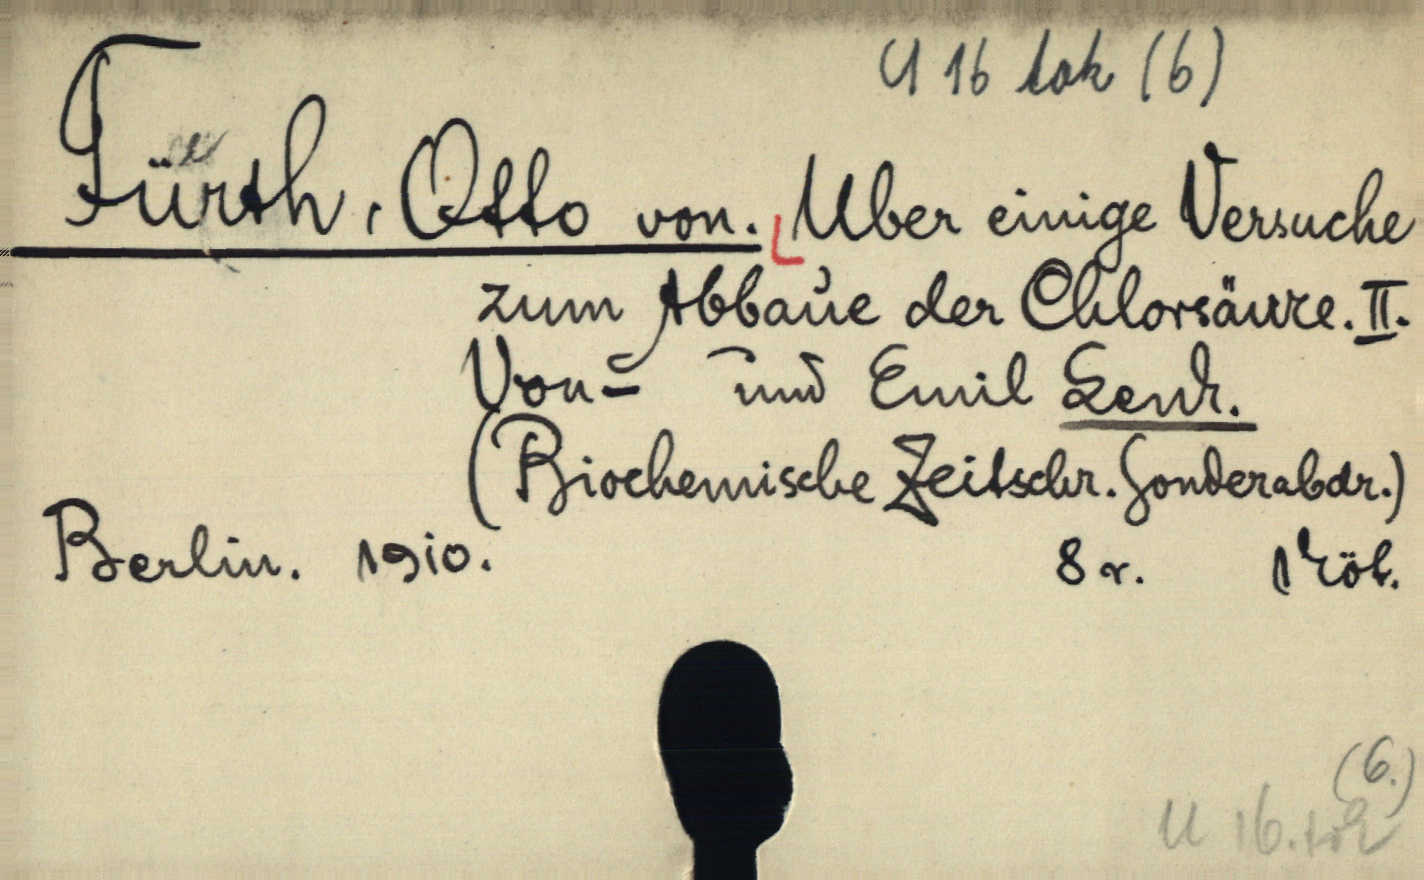 U 16 tok (6)
Fürth, Otto von. Uber einige Versuche
zum Abbaue der Chlorsäure. II.
Von = und Emil Lenk.
(Biochemische Zeitschr. Sonderabdr.)
Berlin. 1910. 8 r. 1 köt.
(6.)
U 16.